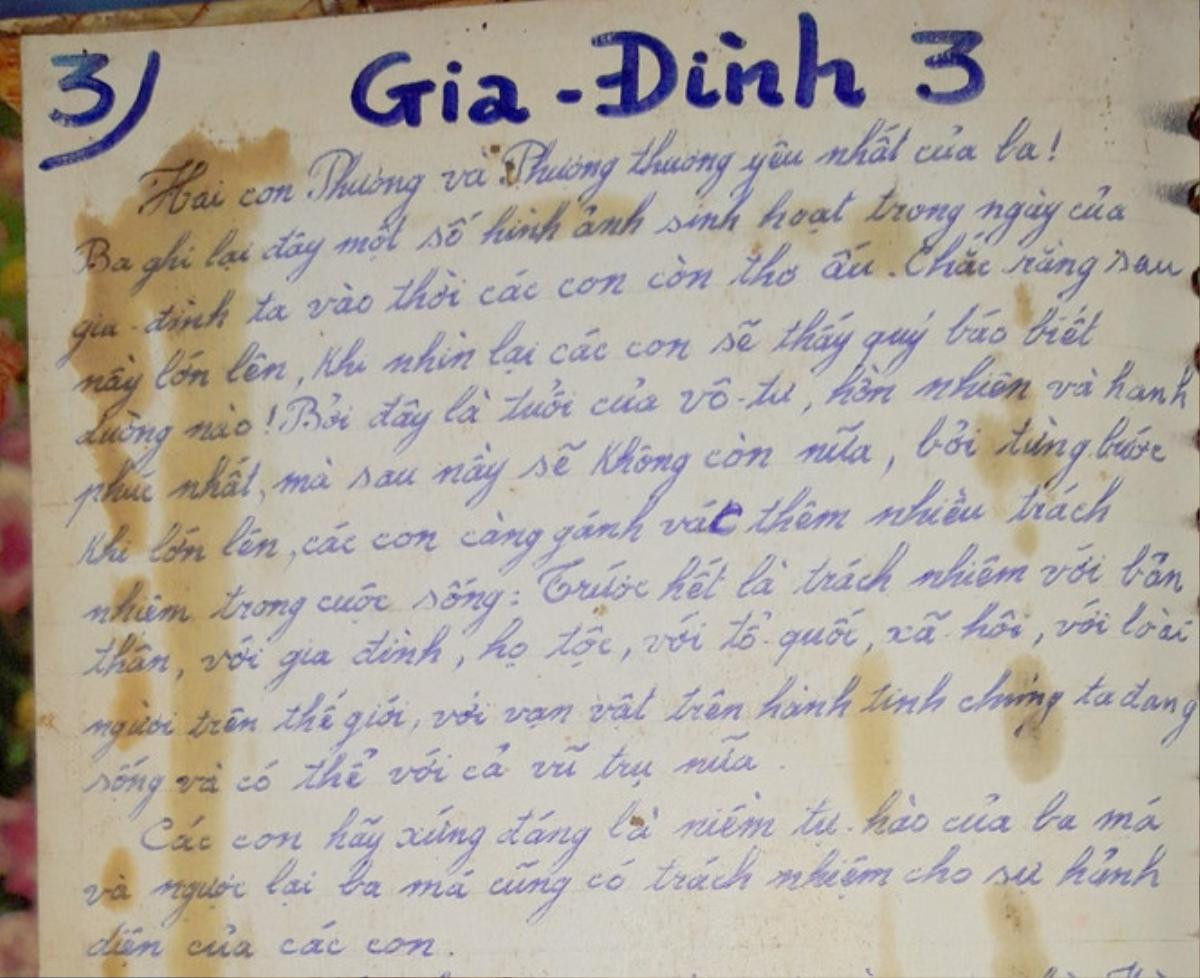 3) Gia-Đình 3
Hai con Phương và Phương thương yêu nhất của ba!
Ba ghi lại đây một số hình ảnh sinh hoạt trong ngày của
gia-đình ta vào thời các con còn thơ ấu. Chắc rằng sau
nầy lớn lên, khi nhìn lại các con sẽ thấy quý báo biết
dường nào! Bởi đây là tuổi của vô-tư, hồn nhiên và hanh
phúc nhất, mà sau nầy sẽ không còn nữa, bởi từng bước
khi lớn lên, các con càng gánh vác thêm nhiều trách
nhiệm trong cuộc sống: Trước hết là trách nhiệm với bản
thân, với gia đình, họ tộc, với tổ-quốc, xã-hôi, với loài
người trên thế giới, với vạn vật trên hành tinh chúng ta đang
sống và có thể với cả vũ trụ nữa.
Các con hãy xứng đáng là niềm tự-hào của ba má
và ngược lại ba má cũng có trách nhiệm cho sự hảnh
diện của các con.